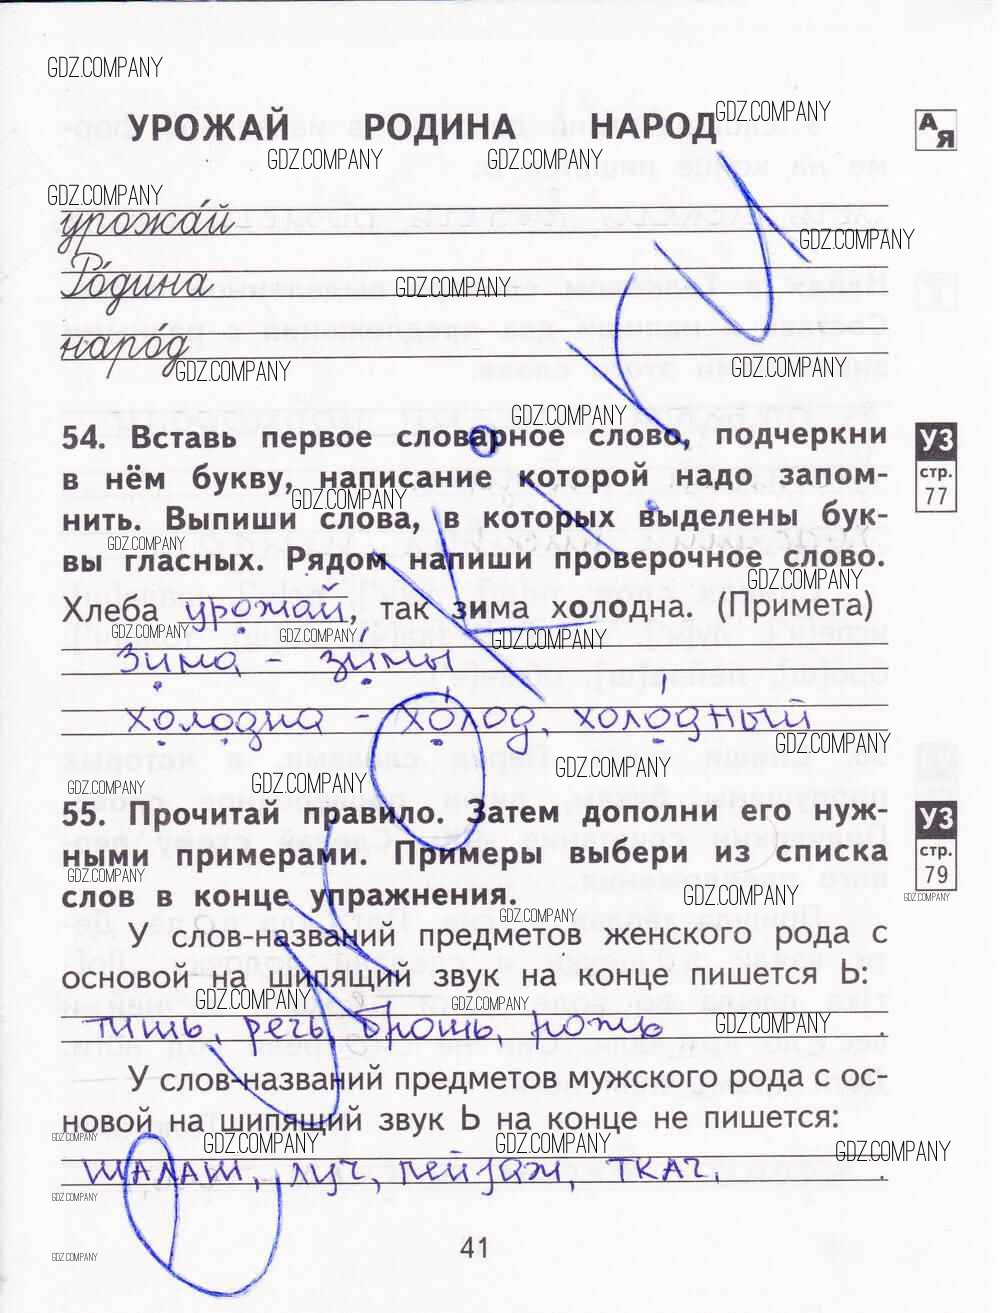 GDZ.COMPANY
GDZ.COMPANY
УРОЖАЙ РОДИНА НАРОД
А Я
GDZ.COMPANY GDZ.COMPANY
GDZ.COMPANY
урожа́й
GDZ.COMPANY
Ро́дина
GDZ.COMPANY
наро́д
GDZ.COMPANY GDZ.COMPANY
GDZ.COMPANY
54. Вставь первое словарное слово, подчеркни
в нём букву, написание которой надо запом-
GDZ.COMPANY
нить. Выпиши слова, в которых выделены бук-
GDZ.COMPANY
вы гласных. Рядом напиши проверочное слово.
УЗ
стр.
77
GDZ.COMPANY
Хлеба урожай, так зима холодна. (Примета)
GDZ.COMPANY GDZ.COMPANY GDZ.COMPANY
зима - зи́мы
холодна - хо́лод, холо́дный
GDZ.COMPANY
GDZ.COMPANY
GDZ.COMPANY GDZ.COMPANY
55. Прочитай правило. Затем дополни его нуж-
ными примерами. Примеры выбери из списка
GDZ.COMPANY
слов в конце упражнения.
УЗ
стр.
79
GDZ.COMPANY GDZ.COMPANY
GDZ.COMPANY
У слов-названий предметов женского рода с
основой на шипящий звук на конце пишется Ь:
GDZ.COMPANY GDZ.COMPANY
тишь, речь, брошь, рожь .
GDZ.COMPANY
У слов-названий предметов мужского рода с ос-
новой на шипящий звук Ь на конце не пишется:
GDZ.COMPANY GDZ.COMPANY GDZ.COMPANY GDZ.COMPANY
шалаш, луч, пейзаж, ткач. .
GDZ.COMPANY
41
GDZ.COMPANY